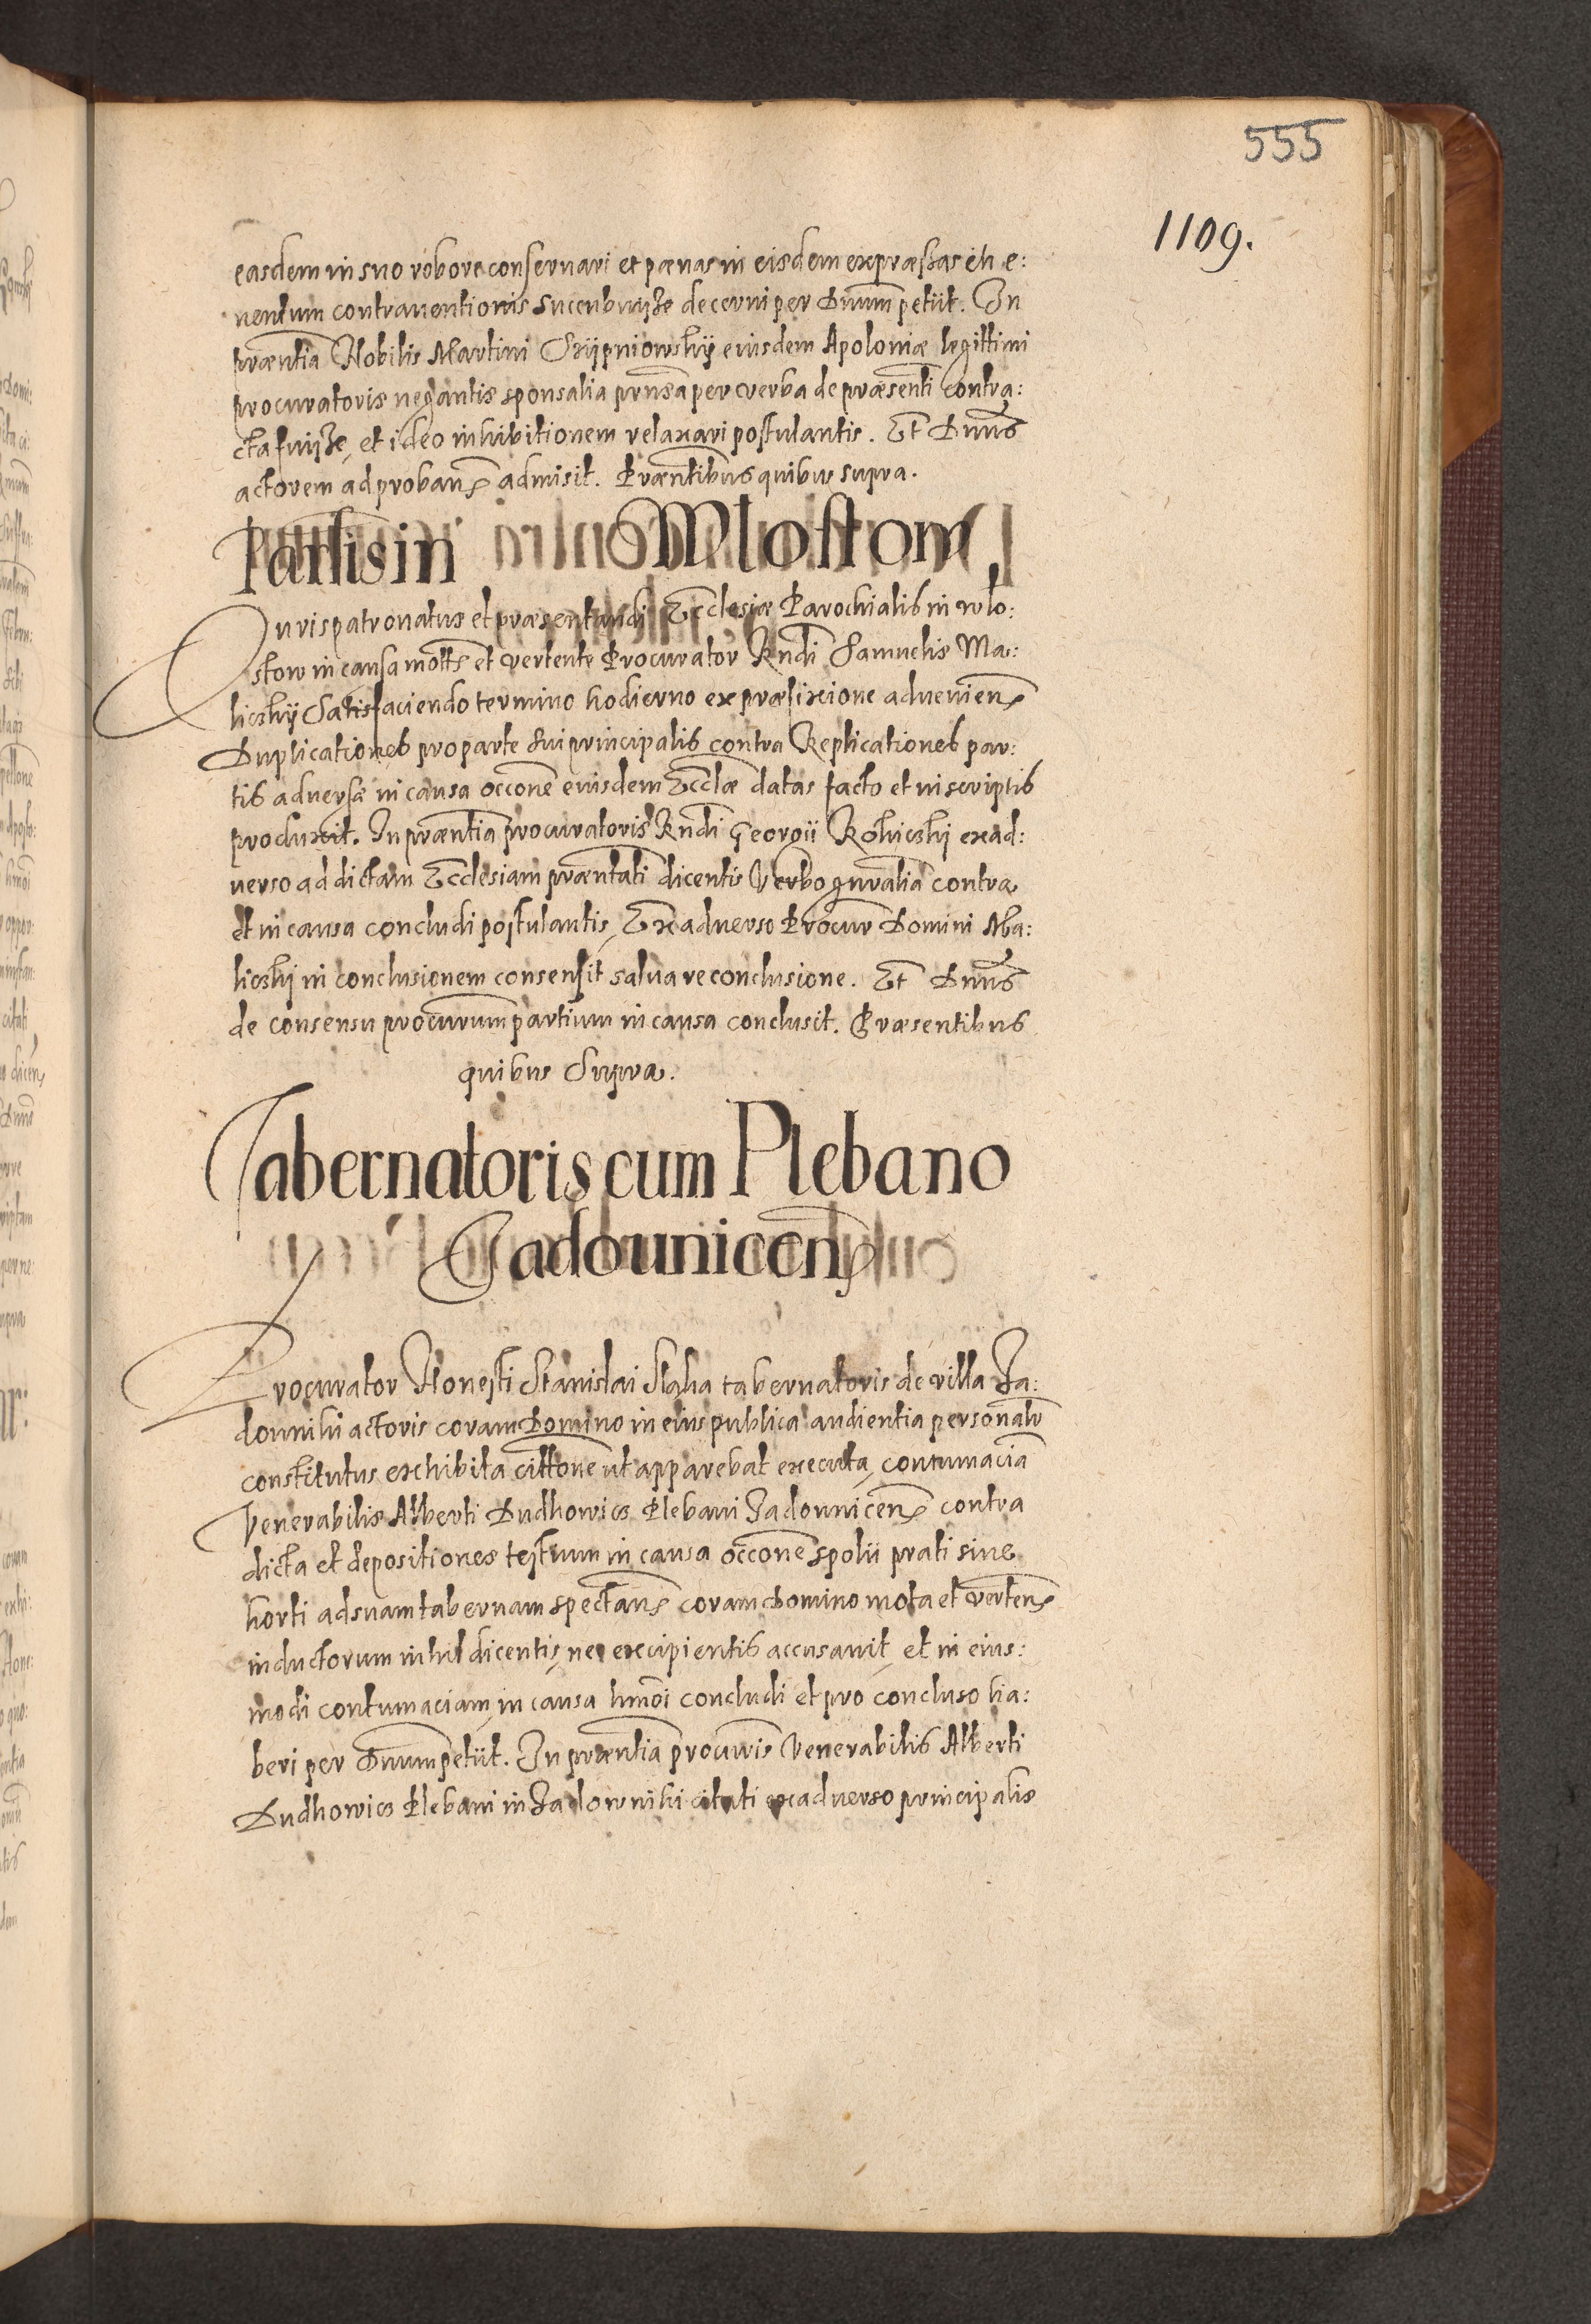 555
1109.
easdem in suo robore conseruari et pœnas in eisdem expræssas in e:
uentum contrauentionis succubuisse decerni per Dnum petiit. In
præntia Nobilis Martini Skypniowsky eiusdem Apoloniæ legittimi
procuratoris negantis sponsalia prnsa per verba de præsenti contra:
cta fuisse, et ideo inhibitionem relaxari postulantis. Et Dnus
actorem ad proban admisit. Præntibus quibus supra.
Partis in Mlostow
Iuris patronatus et præsentandi Ecclesiæ Parochialis in Mlo:
stow in causa mott et vertente Procurator Rndi Samuelis Ma:
licskij Satisfaciendo termino hodierno ex præfixione adueniens
Duplicationes pro parte sui principalis contra Replicationes par:
tis aduersæ in causa occone eiusdem Ecclæ datas facto et in scriptis
produxit. In præntia procuratoris Rndi Georgii Rokicski exad:
uerso ad dictam Ecclesiam præntati dicentis Verbo gnralia contra
et in causa concludi postulantis, Exaduerso Procur Domini Ma:
licskj in conclusionem consensit salua re conclusione. Et Dnus
de consensu procurum partium in causa conclusit. Præsentibus
quibus Supra.
Tabernatoris cum Plebano
Jadounicen
Procurator Honesti Stanislai Staha tabernatoris de villa Ja:
downiki actoris coram Domino in eius publica audientia personalr
constitutus exhibita cittone ut apparebat executa, contumacia
Venerabilis Alberti Dudkowics Plebani Jadounicen contra
dicta et depositiones testium in causa occone spolii prati siue
horti ad suam tabernam spectan coram Domino mota et verten
inductorum nihil dicentis, nec excipientis accusauit, et in eius:
modi contumaciam, in causa hmoi concludi et pro concluso ha:
beri per Dnum petiit. In præntia procuris Venerabilis Alberti
Dudkowics Plebani in Jadowniki citati exaduerso principalis